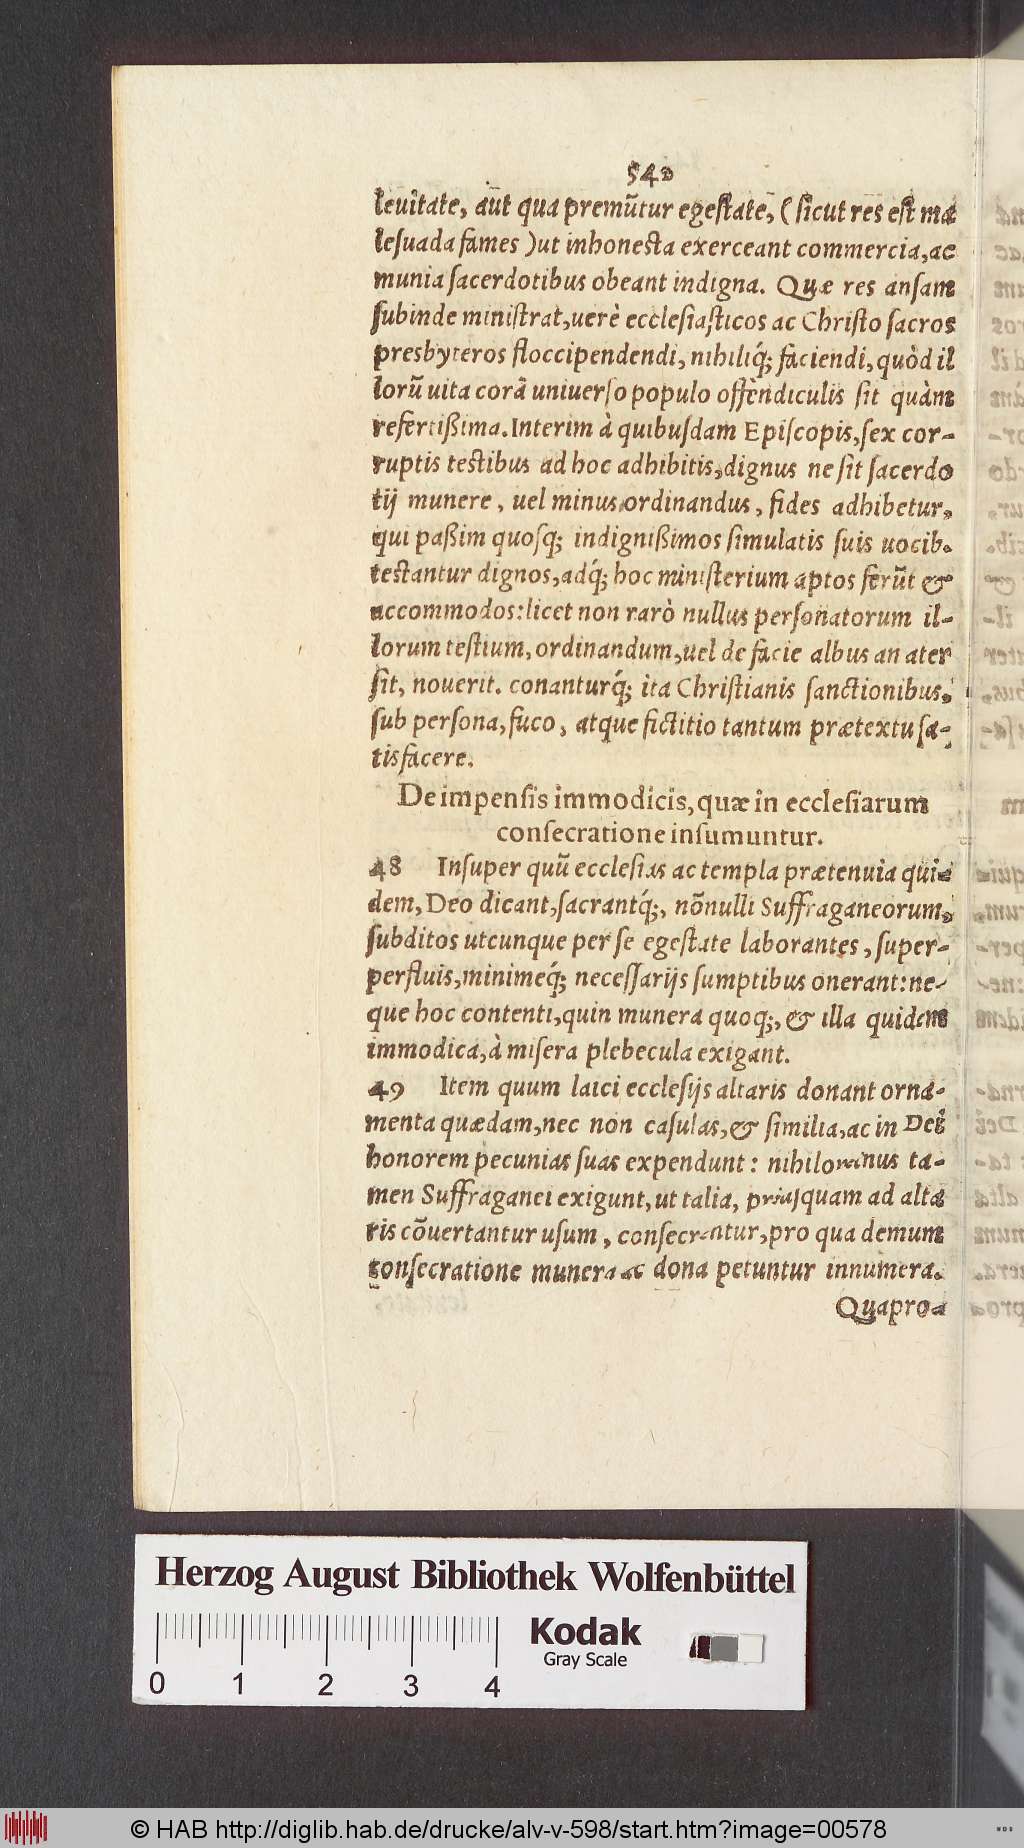 540
leuitate, aut qua premũtur egestate, (sicut res est ma
lesuada fames) ut inhonesta exerceant commercia, ac
munia sacerdotibus obeant indigna. Quæ res ansam
subinde ministrat, uerè ecclesiasticos ac Christo sacros
presbyteros floccipendendi, nihiliq́; faciendi, quòd il
lorũ uita corã uniuerso populo offendiculis sit quàm
refertißima. Interim à quibusdam Episcopis, sex cor-
ruptis testibus ad hoc adhibitis, dignus ne sit sacerdo
tij munere, uel minus ordinandus, fides adhibetur,
qui paßim quosq; indignißimos simulatis suis uocib.
testantur dignos, adq́; hoc ministerium aptos ferũt &
accommodos: licet non rarò nullus personatorum il-
lorum testium, ordinandum, uel de facie albus an ater
sit, nouerit. conanturq́; ita Christianis sanctionibus,
sub persona, fuco, atque fictitio tantum prætextu sa-
tisfacere.
De impensis immodicis, quæ in ecclesiarum
consecratione insumuntur.
48 Insuper quũ ecclesias ac templa prætenuia qui-
dem, Deo dicant, sacrantq́;, nõnulli Suffraganeorum,
subditos utcunque per se egestate laborantes, super-
perfluis, minimeq́; necessarijs sumptibus onerant: ne-
que hoc contenti, quin munera quoq;, & illa quidem
immodica, à misera plebecula exigant.
49 Item quum laici ecclesijs altaris donant orna-
menta quædam, nec non casulas, & similia, ac in Dei
honorem pecunias suas expendunt: nihilominus ta-
men Suffraganei exigunt, ut talia, priusquam ad alta
ris cõuertantur usum, consecrentur, pro qua demum
consecratione munera ac dona petuntur innumera.
Quapro-
Herzog August Bibliothek Wolfenbüttel
Kodak
Gray Scale
0 1 2 3 4
© HAB http://diglib.hab.de/drucke/alv-v-598/start.htm?image=00578